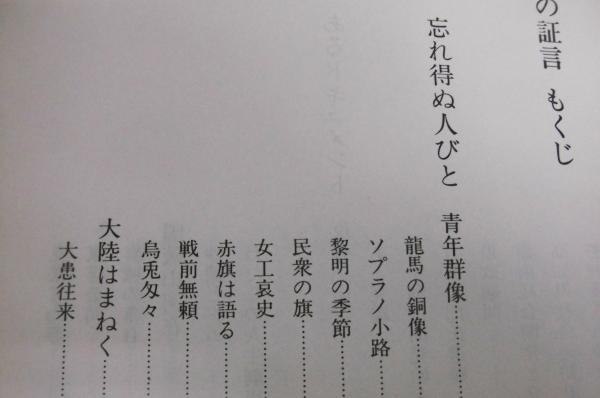 の証言 もくじ
忘れ得ぬ人びと
青年群像
龍馬の銅像
ソプラノ小路
黎明の季節
民衆の旗
女工哀史
赤旗は語る
戦前無頼
烏兎匆々
大陸はまねく
大患往来